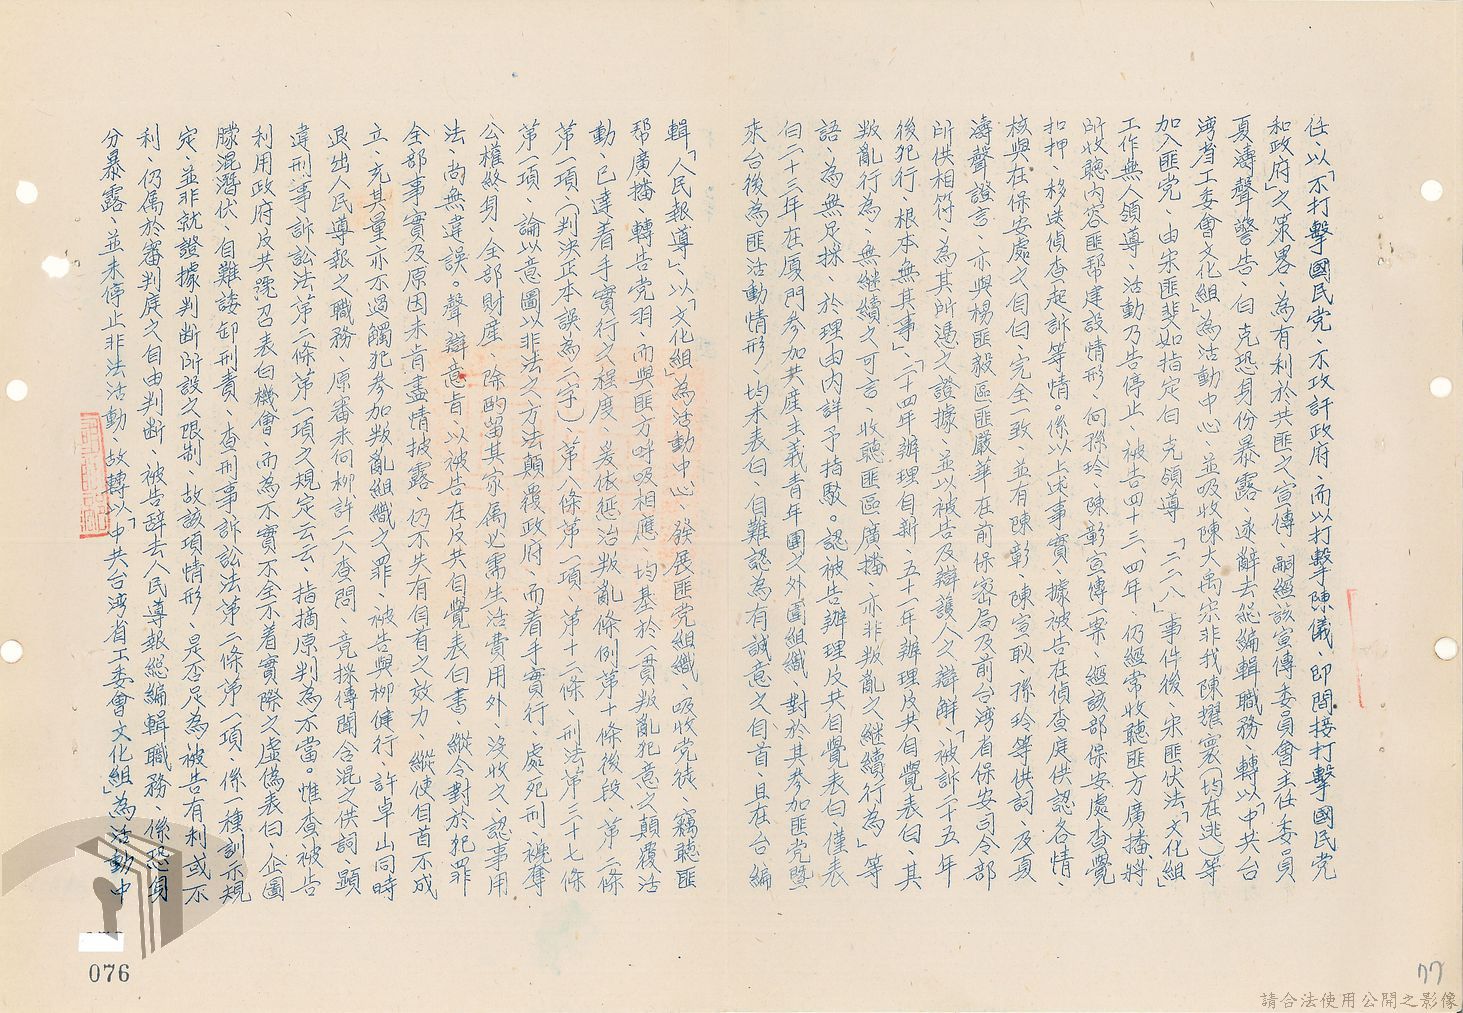 任、以「不打擊國民党、不政訐政府、而以打擊陳儀、即間接打擊國民党
和政府」之策畧、為有利於共匪之宣傳、嗣經該宣傳委員會主任委員
夏濤聲警告、白克恐身份暴露、遂辭去總編輯職務、轉以「中共台
湾省工委會文化組」為活動中心、並吸收陳大禹宗非我陳耀寰(均在逃)等
加入匪党、由宋匪斐如指定白克領導、「二二八」事件後、宋匪伏法「文化組」
工作無人領導、活動乃告停止、被告四十三、四年、仍經常收聽匪方廣播、將
所收聽內容匪幫建設情形、向孫玲、陳彰宣傳、案、經該部保安處查覺
扣押、移送偵查起訴等情。係以上述事實、據被告在偵查庭供認各情、
核與在保安處之自白、完全一致、並有陳彰、陳宣耿、孫玲等供詞、及夏
濤聲證言、亦與楊匪毅區匪嚴華在前保密局及前台湾省保安司令部
所供相符、為其所憑之證據、並以被告及辯護人之辯解、「被訴二十五年
後犯行、根本無其事」、「十四年辦理自新、五十一年辦理反共自覺表白、其
叛亂行為、無繼續之可言、收聽匪區廣播、亦非叛亂之継續行為」等
語、為無足採、於理由內詳予指駁。認被告辦理反共自覺表白僅表
白二十三年在厦門参加共産主義青年團之外圍組織、對於其参加匪党暨
來台後為匪活動情形、均未表白、自難認為有誠意之自首、且在台編
輯「人民報導」、以「文化組」為活動中心、發展匪党組織、吸收党徒、竊聽匪
幫廣播、轉告党羽、而與匪方呼吸相應、均基於一貫叛亂犯意之顛覆活
動、已達着手實行之程度、爰依惩治叛亂條例第十條後段、第二條
第一項、(判決正本誤為二字)、第八條第一項、第十二條、刑法第三十七條
第一項、論以意圖以非法之方法顛覆政府、而着手實行、處死刑、褫奪
公權終身、全部財産、除酌留其家属必需生活費用外、沒收之、認事用
法、尚無違誤。聲辯意旨、以被告在反共自覺表白書、縱令對於犯罪
全部事實及原因未肯盡情披露、仍不失有自首之效力、縱使自首不成
立、充其量亦不過觸犯参加叛亂組織之罪、被告與柳健行、許卓山同時
退出人民導報之職務、原審未向柳許二人查問、竟採傳聞含混之供詞、顯
違刑事訴訟法第二條第一項之規定云云、指摘原判為不當。惟查被告
利用政府反共號召表白機會、而為不實不全不着實際之虛偽表白、企圖
矇混潛伏、自難諉卸刑責、查刑事訴訟法第二條第一項、係一種訓示規
定、並非就證據判断所設之限制、故該項情形、是否足為被告有利或不
利、仍属於審判庭之自由判断、被告辞去人民導報總編輯職務、係恐身
分暴露、並未停止非法活動、故轉以「中共台湾省工委會文化組」為活動中
076
77
請合法使用公開之影像